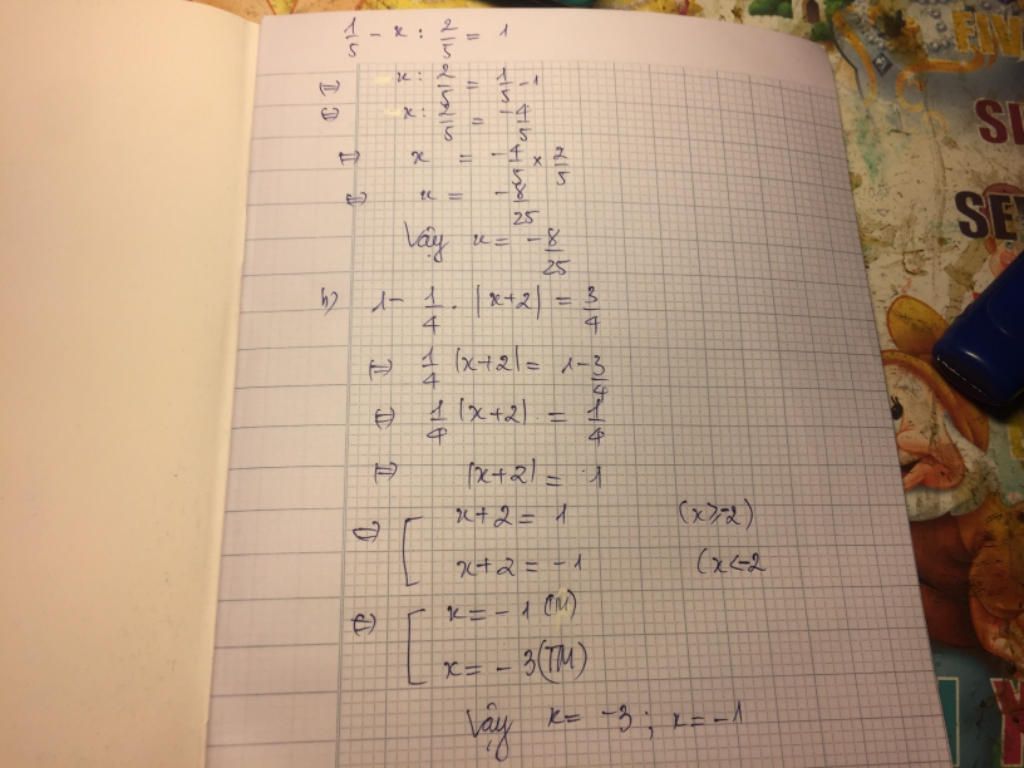 1/5 - x : 2/5 = 1
⇔ x : 2/5 = 1/5 - 1
⇔ x : 2/5 = -4/5
⇔ x = -4/5 × 2/5
⇔ x = -8/25
Vậy x = -8/25
h) 1 - 1/4 . |x+2| = 3/4
⇔ 1/4 |x+2| = 1 - 3/4
⇔ 1/4 |x+2| = 1/4
⇔ |x+2| = 1
⇔ [ x+2 = 1 (x ≥ -2)
x+2 = -1 (x < -2
⇔ [ x = -1 (TM)
x = -3 (TM)
Vậy x = -3 ; x = -1
FIV
SI
SE